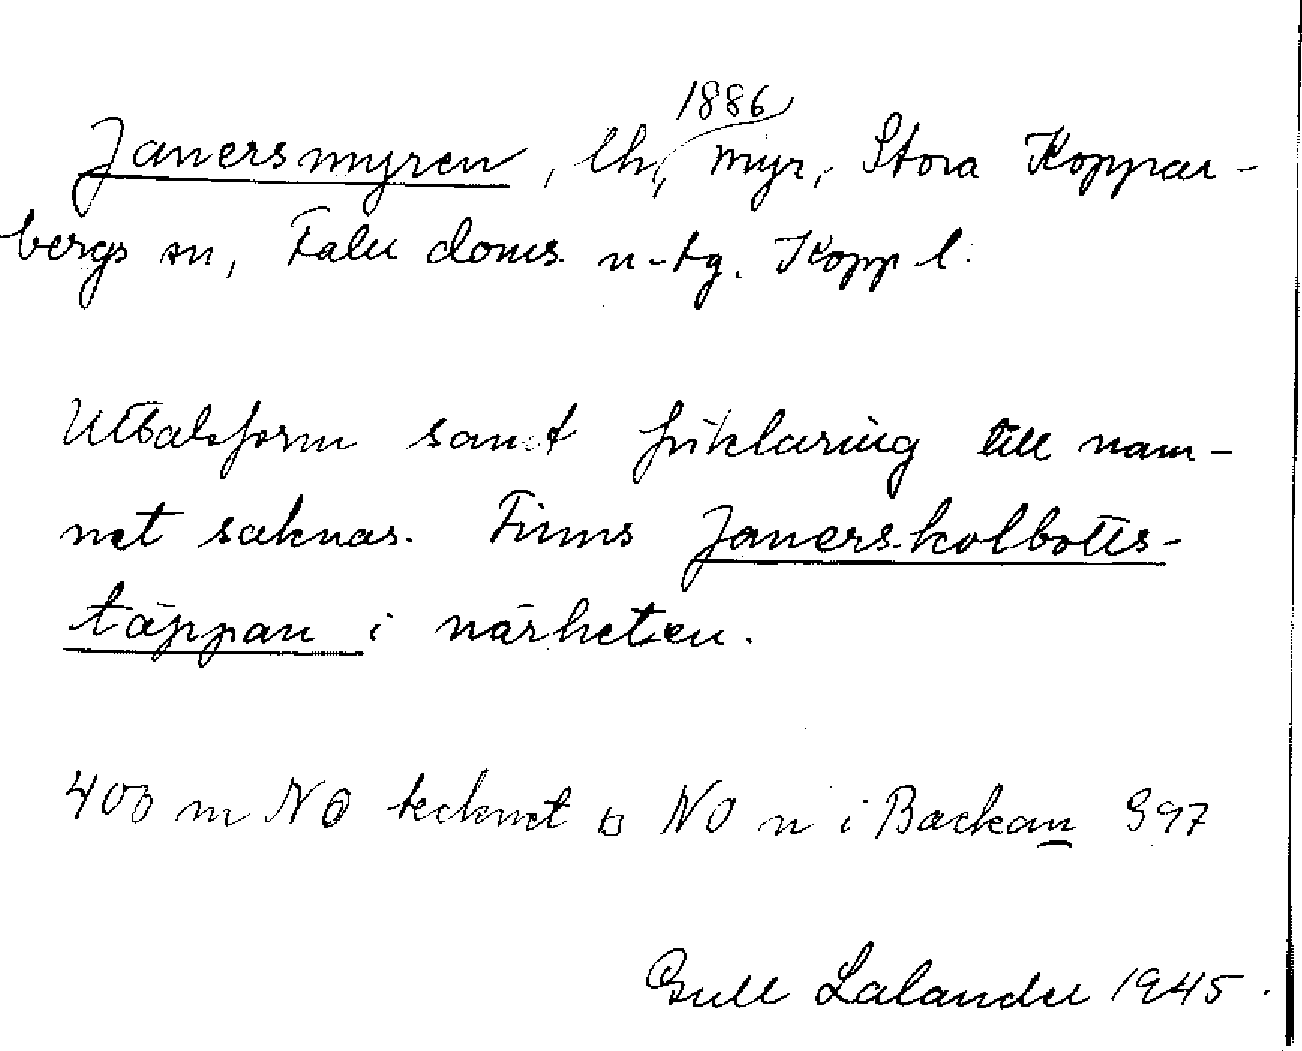 1886
Janersmyren, lh, myr, Stora Koppar-
bergs sn, Falu doms. n-tg. Kopp l.
Uttalsform samt förklaring till nam-
net saknas. Finns Janerskolbotts-
täppan i närheten.
400 m NO tecknet □ NO n i Backan 997
Gull Lalander 1945.